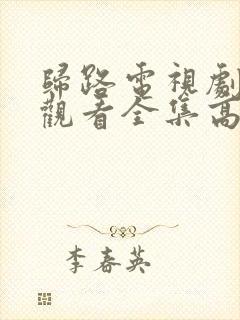 歸路電視劇
觀看全集高
李春英